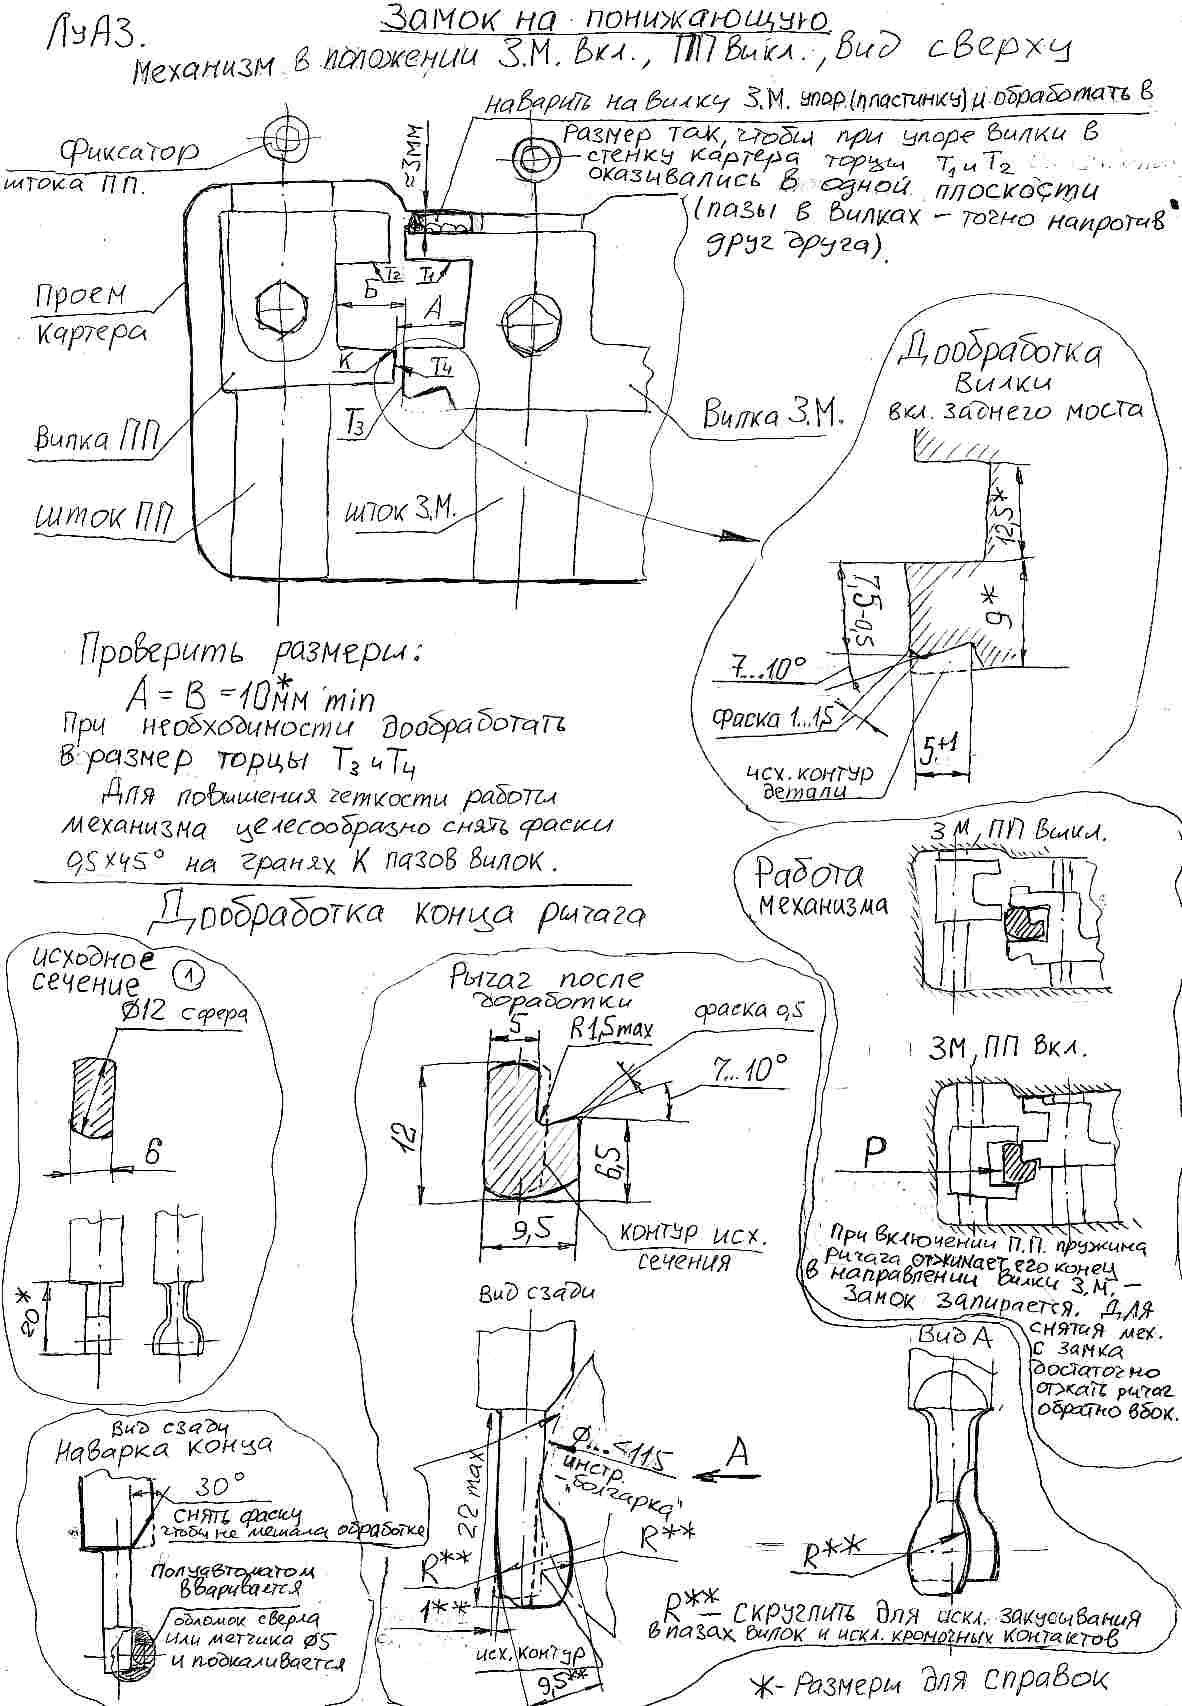 ЛуАЗ.
Замок на понижающую
Механизм в положении З.М. Вкл., ПП Викл., Вид сверху
наварить на вилку З.М. упор (пластинку) и обработать в
размер так, чтобы при упоре вилки в
стенку картера торцы Т1 и Т2
оказивались в одной плоскости
(пазы в вилках – точно напротив
друг друга).
Фиксатор
штока ПП.
≈3мм
Проем
картера
Т2
Т1
Б
А
К
Т4
Т3
Вилка ПП
шток ПП
шток З.М.
Вилка З.М.
Дообработка
вилки
вкл. заднего моста
12,5*
9*
7,5-0,5
7...10°
фаска 1...1,5
5+1
исх. контур
детали
Проверить размеры:
А = В = 10*мм min
При необходимости дообработать
в размер торцы Т3 и Т4
Для повышения четкости работы
механизма целесообразно снять фаски
0,5х45° на гранях К пазов вилок.
Дообработка конца рычага
исходное
сечение
1
Ø12 сфера
6
20*
Рычаг после
доработки
5
R1,5max
фаска 0,5
7...10°
12
6,5
9,5
контур исх.
сечения
Работа
механизма
ЗМ, ПП Выкл.
ЗМ, ПП Вкл.
Р
При включении П.П. пружина
рычага отжимает его конец
в направлении вилки З.М. –
Замок запирается. Для
снятия мех.
с замка
достаточно
отжать рычаг
обратно вбок.
Вид сзади
Наварка конца
30°
снять фаску
чтобы не мешала обработке
Полуавтоматом
вваривается
обломок сверла
или метчика Ø5
и подкаливается
Вид сзади
22 max
Ø...≤115
инстр.
– "болгарка"
А
R**
R**
1**
исх. контур
9,5**
Вид А
R**
R** – скруглить для искл. закусывания
в пазах вилок и искл. кромочных контактов
*-Размеры для справок